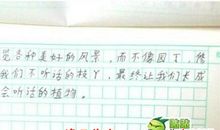 觉各种美好的风景，而不像园丁，修
我们不听话的枝丫，最终让我们长成
会听话的植物。